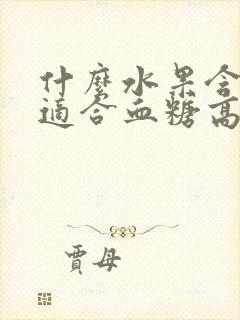 什麼水果含
適合血糖高
賈母